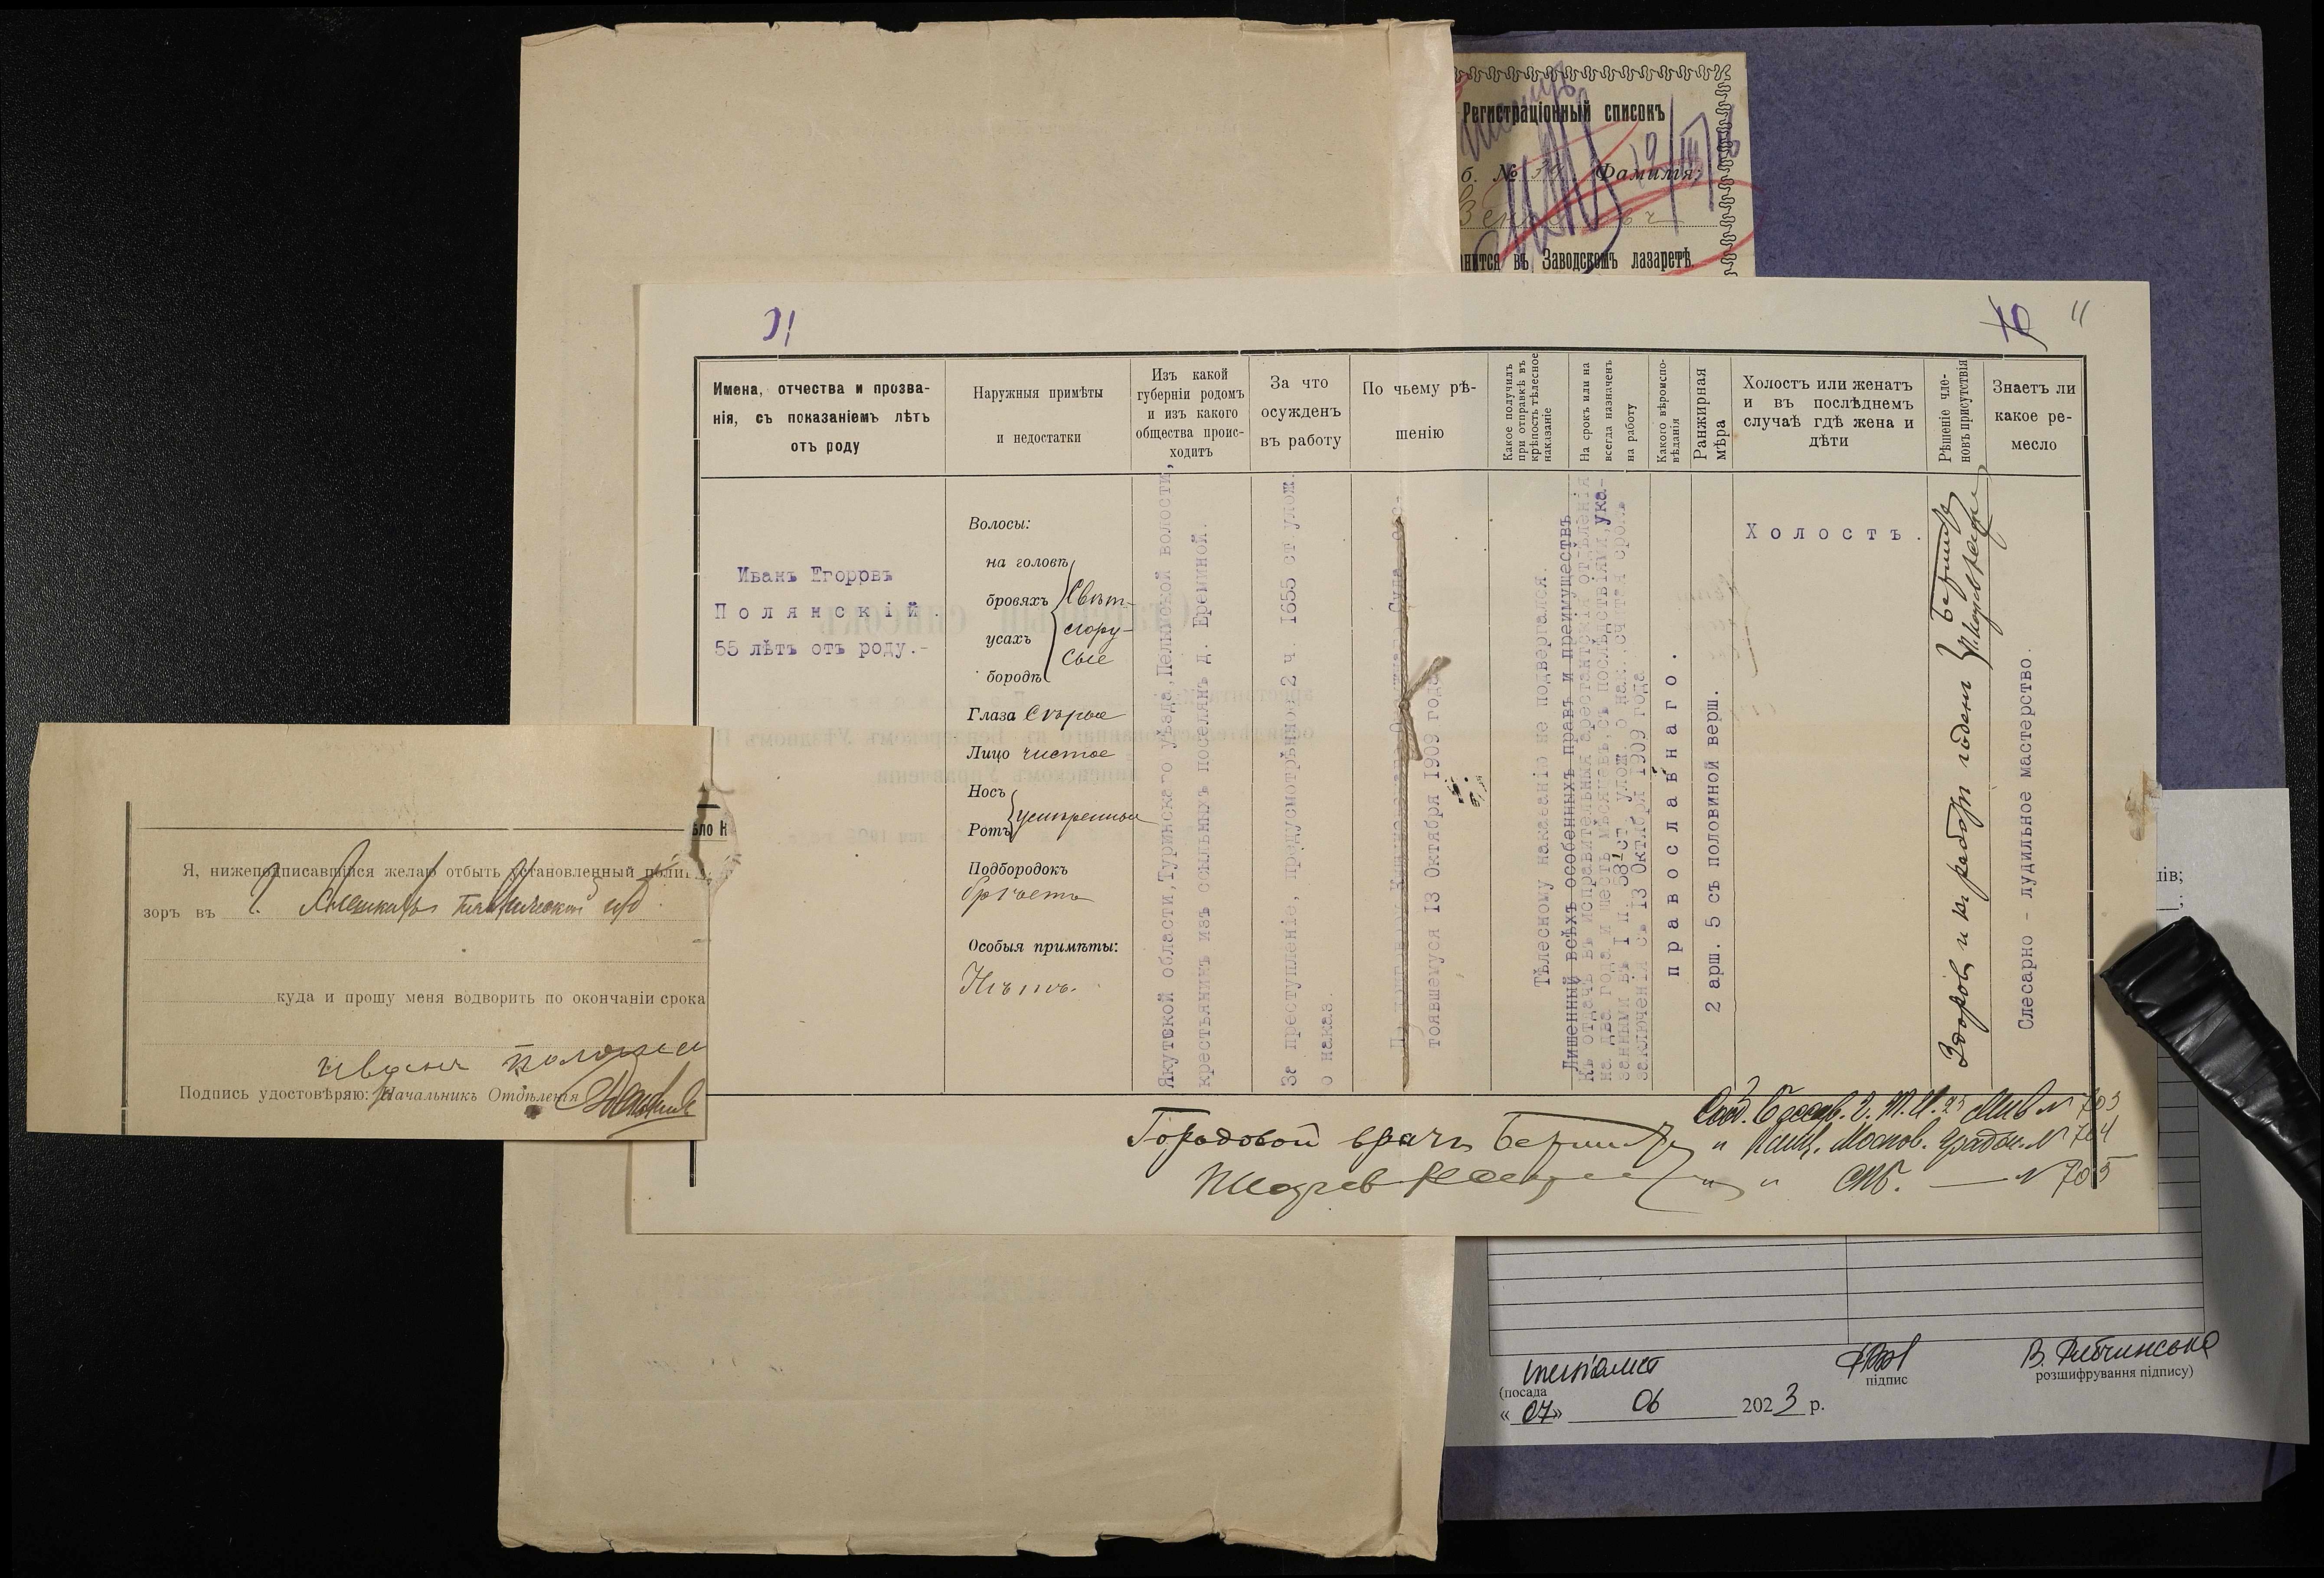 Регистраціонный списокъ
б. №
Фамилія:
въ Заводскомъ лазаретѣ.
11
Имена, отчества и прозва-
нія, съ показаніемъ лѣтъ
отъ роду
Наружныя примѣты
и недостатки
Изъ какой
губерніи родомъ
и изъ какого
общества проис-
ходитъ
За что
осужденъ
въ работу
По чьему рѣ-
шенію
Какое получилъ
при отправкѣ въ
крѣпость тѣлесное
наказаніе
На срокъ или на
всегда назначенъ
на работу
Какого вѣроиспо-
вѣданія
Ранжирная
мѣра
Холостъ или женатъ
и въ послѣднемъ
случаѣ гдѣ жена и
дѣти
Рѣшеніе чле-
новъ присутствія
Знаетъ ли
какое ре-
месло
Иванъ Егоровъ
Полянскій.
55 лѣтъ отъ роду.-
Волосы:
на головѣ
бровяхъ
усахъ
бородѣ
Свѣт-
лору-
сые
Глаза Сѣрые
Лицо чистое
Носъ
Ротъ
умѣренные
Подбородокъ
брѣетъ
Особыя примѣты:
Нѣтъ.
Якутской области, Туринскаго уѣзда, волости,
крестьянинъ изъ ссыльныхъ поселянъ д. Ереминой.
За преступленіе, предусмотрѣнное 2 ч. 1655 ст улож.
о наказ.
По приговору Кишиневскаго Окружнаго Суда, сос-
тоявшемуся 13 Октября 1909 года
Тѣлесному наказанію не подвергался.
Лишенный всѣхъ особенныхъ правъ и преимуществъ
къ отдачѣ въ исправительныя арестантскія отдѣленія
на два года и шесть мѣсяцевъ, съ послѣдствіями, ука-
занными въ I п. 58¹ ст. улож. о нак., счтая срокъ
заключенія съ 13 Октября 1909 года
православнаго.
2 арш. 5 съ половиной верш.
Холостъ.
Здоровъ и къ работѣ годенъ
Слесарно - лудильное мастерство.
Городовой врачъ
№ 703
Москов. Градон. № 704
СПБ. — № 705
ѣло К
Я, нижеподписавшійся желаю отбыть установленный поли
зоръ въ г.
куда и прошу меня водворить по окончаніи срока
иванъ
Подпись удостовѣряю: Начальникъ Отдѣленія
ів;
спеціаліст
(посада
підпис
В. Рибчинська
розшифрування підпису)
« 07 » 06 2023 р.